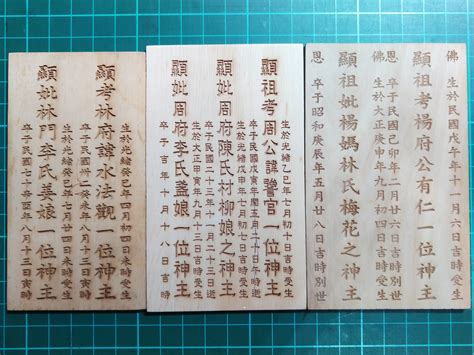 佛 生於民國戊午年十一月六日吉時受生
顯祖考楊府公有仁一位神主
卒于民國癸卯年二月廿六日吉時別世
佛 生於大正庚申年九月初四日吉時受生
顯祖妣楊媽林氏梅花之神主
恩 卒于昭和庚辰年五月廿八日吉時別世
生於光緒乙巳年七月初一日吉時受生
顯祖考周公諱官一位神主
卒于民國年閏五月三十日午時逝
生於光緒戊申年七月初九日吉時受生
顯妣周府陳氏村柳娘之神主
卒于民國二十九年二月十三日吉時逝
生於大正甲寅年九月十三日吉時受生
顯妣周府李氏蓋娘一位神主
卒于吉年十月十八日吉時
生於光緒癸巳年四月初四日未時受生
顯考林府諱水法觀一位神主
卒于民國卅二癸未年八月十三日寅時
生於光緒年七月初六日吉時受生
顯妣林門李氏姜娘一位神主
卒于民國七十年酉年八月十三日寅時